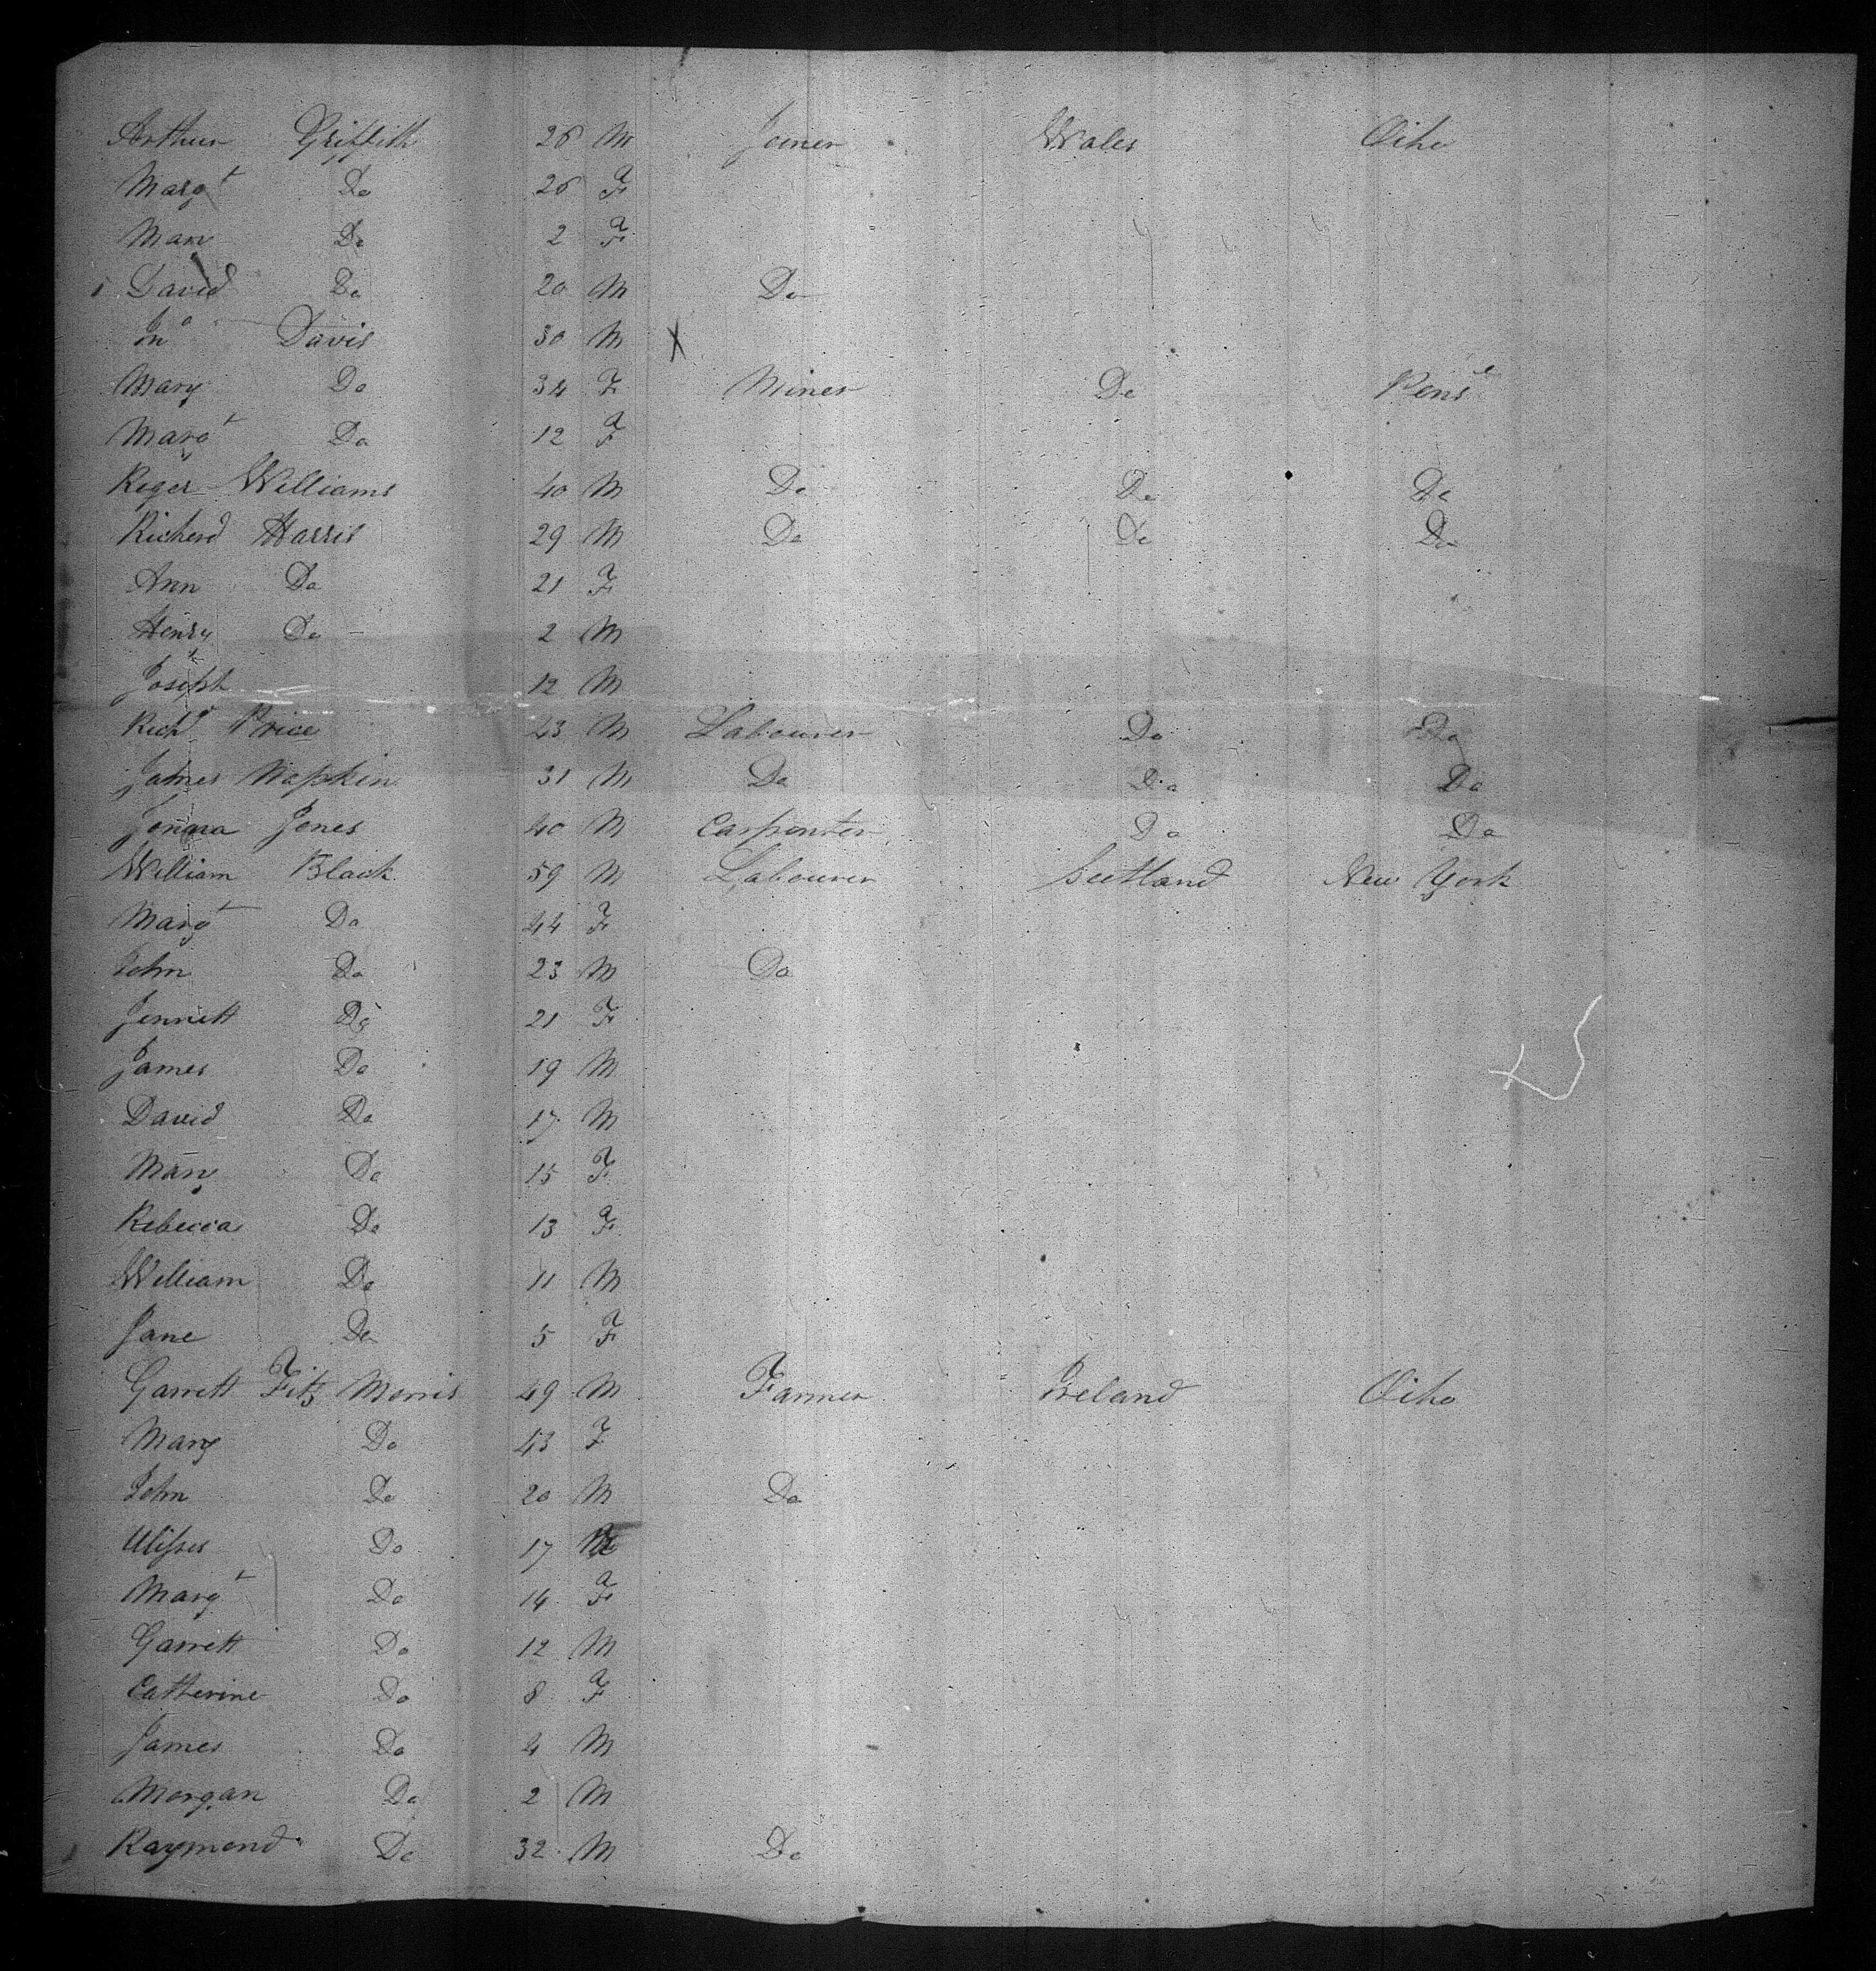 Arthur Griffith 26 M Joiner Wales Oiho
Margt Do 26 F
Mary Do 2 F
David Do 20 M Do
Jno Davis 30 M X
Mary Do 34 F Miner Do Pensl
Margt Do 12 F
Roger Williams 40 M Do Do Do
Richerd Harris 29 M Do Do Do
Ann Do 21 F
Henry Do 2 M
Joseph 12 M
Richd Price 23 M Labourer Do Do
James Napkin 31 M Do Do Do
Jones 40 M Carpenter Do Do
William Black 59 M Labourer Scotland New York
Margt Do 44 F
John Do 23 M Do
Jennett Do 21 F
James Do 19 M
David Do 17 M
Mary Do 15 F
Rebecca Do 13 F
William Do 11 M
Jane Do 5 F
Garrett Fitz Morris 49 M Farmer Ireland Oiho
Mary Do 43 F
John Do 20 M Do
Ulisses Do 17 M
Margt Do 14 F
Garrett Do 12 M
Catherine Do 8 F
James Do 4 M
Morgan Do 2 M
Raymond Do 32 M Do